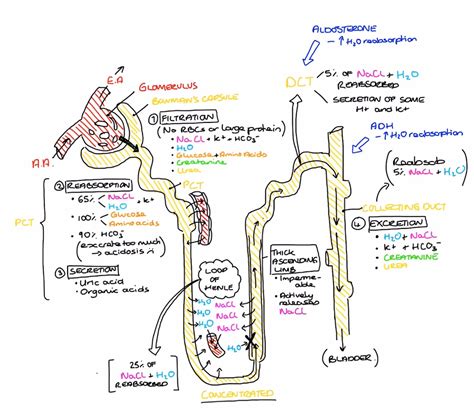 ALDOSTERONE
- ↑ H₂O reabsorption
E.A
GLOMERULUS
BOWMAN'S CAPSULE
A.A.
① FILTRATION
(No RBCs or large protein)
• NaCl + K+ + HCO₃⁻
• H₂O
• Glucose + Amino Acids
• Creatanine
• Urea
DCT
5% OF NaCl + H₂O
REABSORBED
SECRETION OF SOME
H+ and K+
ADH
- ↑ H₂O reabsorption
(Reabsorb
5% NaCl + H₂O)
PCT
② REABSORPTION
• 65% NaCl K+
H₂O
• 100% Glucose
Amino acids
• 90% HCO₃⁻
(excrete too much
→ acidosis
③ SECRETION
• Uric acid
• Organic acids
PCT
COLLECTING DUCT
④ EXCRETION
• H₂O + NaCl
• K+ + HCO₃⁻
• CREATANINE
• UREA
LOOP
OF
HENLE
THICK
ASCENDING
LIMB
• Imperme-
able
• Actively
released
NaCl
H₂O NaCl
H₂O NaCl
H₂O NaCl
H₂O NaCl
H₂O
25% OF
NaCl + H₂O
REABSORBED
CONCENTRATED
(BLADDER)